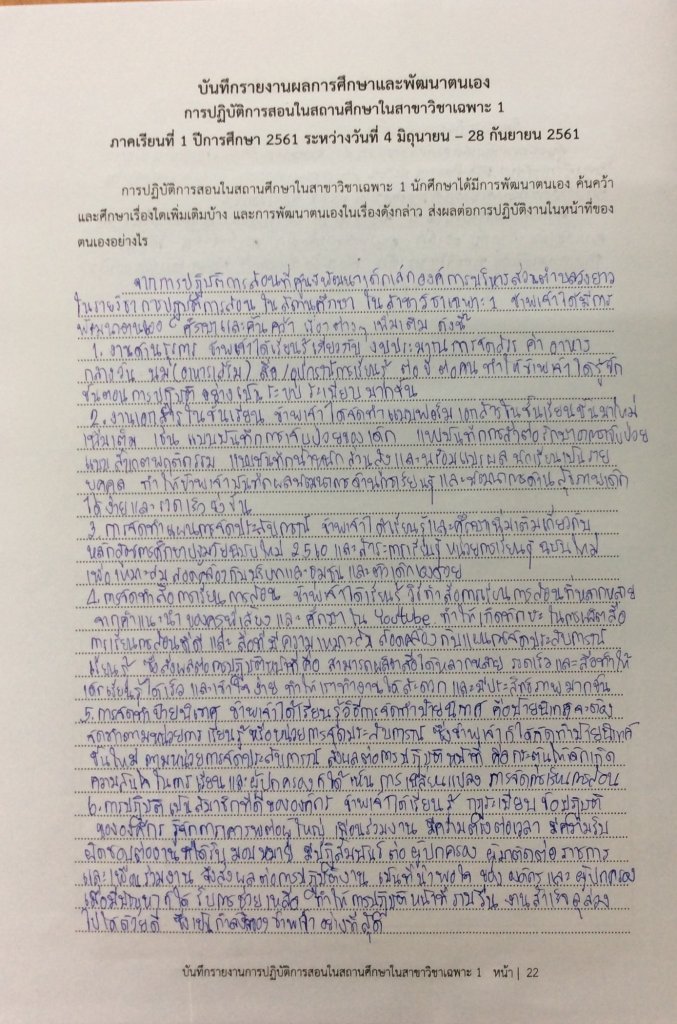 บันทึกรายงานผลการศึกษาและพัฒนาตนเอง
การปฏิบัติการสอนในสถานศึกษาในสาขาวิชาเฉพาะ 1
ภาคเรียนที่ 1 ปีการศึกษา 2561 ระหว่างวันที่ 4 มิถุนายน – 28 กันยายน 2561
การปฏิบัติการสอนในสถานศึกษาในสาขาวิชาเฉพาะ 1 นักศึกษาได้มีการพัฒนาตนเอง ค้นคว้า
และศึกษาเรื่องใดเพิ่มเติมบ้าง และการพัฒนาตนเองในเรื่องดังกล่าว ส่งผลต่อการปฏิบัติงานในหน้าที่ของ
ตนเองอย่างไร
จากการปฏิบัติการสอนที่ศูนย์พัฒนาเด็กเล็กองค์การบริหารส่วนตำบล
ในรายวิชา การปฏิบัติการสอน ในสถานศึกษา ในสาขาวิชาเฉพาะ 1 ข้าพเจ้าได้มีการ
พัฒนาตนเอง ศึกษาและค้นคว้า เรื่องต่างๆ เพิ่มเติม ดังนี้
1. งานด้านธุรการ ข้าพเจ้าได้เรียนรู้เกี่ยวกับ งบประมาณ การจัดสรร ค่า อาหาร
กลางวัน นม (อาหารเสริม) สื่อ/อุปกรณ์การเรียนรู้ ต่อปี ต่อคน ทำให้ข้าพเจ้าได้รู้จัก
ขั้นตอนการปฏิบัติ อย่างเป็นระเบียบ มากขึ้น
2. งานเอกสารในชั้นเรียน ข้าพเจ้าได้จัดทำแบบฟอร์มเอกสารในชั้นเรียนขึ้นมาใหม่
เพิ่มเติม เช่น แบบบันทึกการเจ็บป่วยของเด็ก แบบบันทึกการส่งต่อรักษา
แบบสังเกตพฤติกรรม แบบบันทึกน้ำหนักส่วนสูง และพร้อมแปรผล นักเรียนเป็นราย
บุคคล ทำให้ข้าพเจ้าบันทึกผลพัฒนาการด้านการเรียนรู้ และพัฒนาการด้านสุขภาพเด็ก
ได้ง่ายและรวดเร็วยิ่งขึ้น
3. การจัดทำแผนการจัดประสบการณ์ ข้าพเจ้าได้เรียนรู้และศึกษาเพิ่มเติมเกี่ยวกับ
หลักสูตรการศึกษาปฐมวัยฉบับใหม่ 2560 และสาระการเรียนรู้ หน่วยการเรียนรู้ ฉบับใหม่
เพื่อให้เหมาะสม สอดคล้องกับบริบทและชุมชน และตัวเด็กเองด้วย
4. การจัดทำสื่อการเรียน การสอน ข้าพเจ้าได้เรียนรู้ วิธีทำสื่อการเรียน การสอนที่หลากหลาย
จากคำแนะนำ ของครูพี่เลี้ยง และศึกษาใน Youtube ทำให้เกิดทักษะ ในการผลิตสื่อ
การเรียนการสอนที่ดี และ สื่อที่มีความเหมาะสม สอดคล้อง กับแผนการจัดประสบการณ์
เรียนรู้ ซึ่งส่งผลต่อการปฏิบัติหน้าที่ คือ สามารถผลิตสื่อได้หลากหลาย รวดเร็ว และสื่อทำให้
เด็กเรียนรู้ได้เร็ว และเข้าใจง่าย ทำให้เราทำงานได้สะดวก และมีประสิทธิภาพมากขึ้น
5. การจัดทำป้ายนิเทศ ข้าพเจ้าได้เรียนรู้วิธีการจัดทำป้ายนิเทศ คือป้ายนิเทศจะต้อง
จัดทำตามหน่วยการ เรียนรู้ หรือหน่วยการจัดประสบการณ์ ซึ่งข้าพเจ้าก็ได้จัดทำป้ายนิเทศ
ขึ้นใหม่ ตามหน่วยการจัดประสบการณ์ ส่งผลต่อการปฏิบัติ หน้าที่ คือ กระตุ้นให้เด็กเกิด
ความสนใจ ในการเรียน และผู้ปกครองก็ได้เห็น การเปลี่ยนแปลง การจัดการเรียนการสอน
6. การปฏิบัติ เป็นสมาชิกที่ดีขององค์กร ข้าพเจ้าได้เรียนรู้ กฎระเบียบ ข้อปฏิบัติ
ขององค์กร รู้จักการเคารพต่อผู้ใหญ่ เพื่อนร่วมงาน มีความตรงต่อเวลา มีความรับ
ผิดชอบต่องานที่ได้รับ มอบหมาย มีปฏิสัมพันธ์ ต่อ ผู้ปกครอง ผู้มาติดต่อ ราชการ
และเพื่อนร่วมงาน ซึ่งส่งผล ต่อการปฏิบัติงาน เป็นที่น่าพอใจ ของ องค์กร และ ผู้ปกครอง
เมื่อมีปัญหา ก็ได้ รับการช่วยเหลือ ทำให้ การปฏิบัติหน้าที่ ราบรื่น งานสำเร็จ ลุล่วง
ไปได้ด้วยดี ซึ่งเป็นกำลังใจของข้าพเจ้า อย่างที่สุด
บันทึกรายงานการปฏิบัติการสอนในสถานศึกษาในสาขาวิชาเฉพาะ 1 หน้า | 22